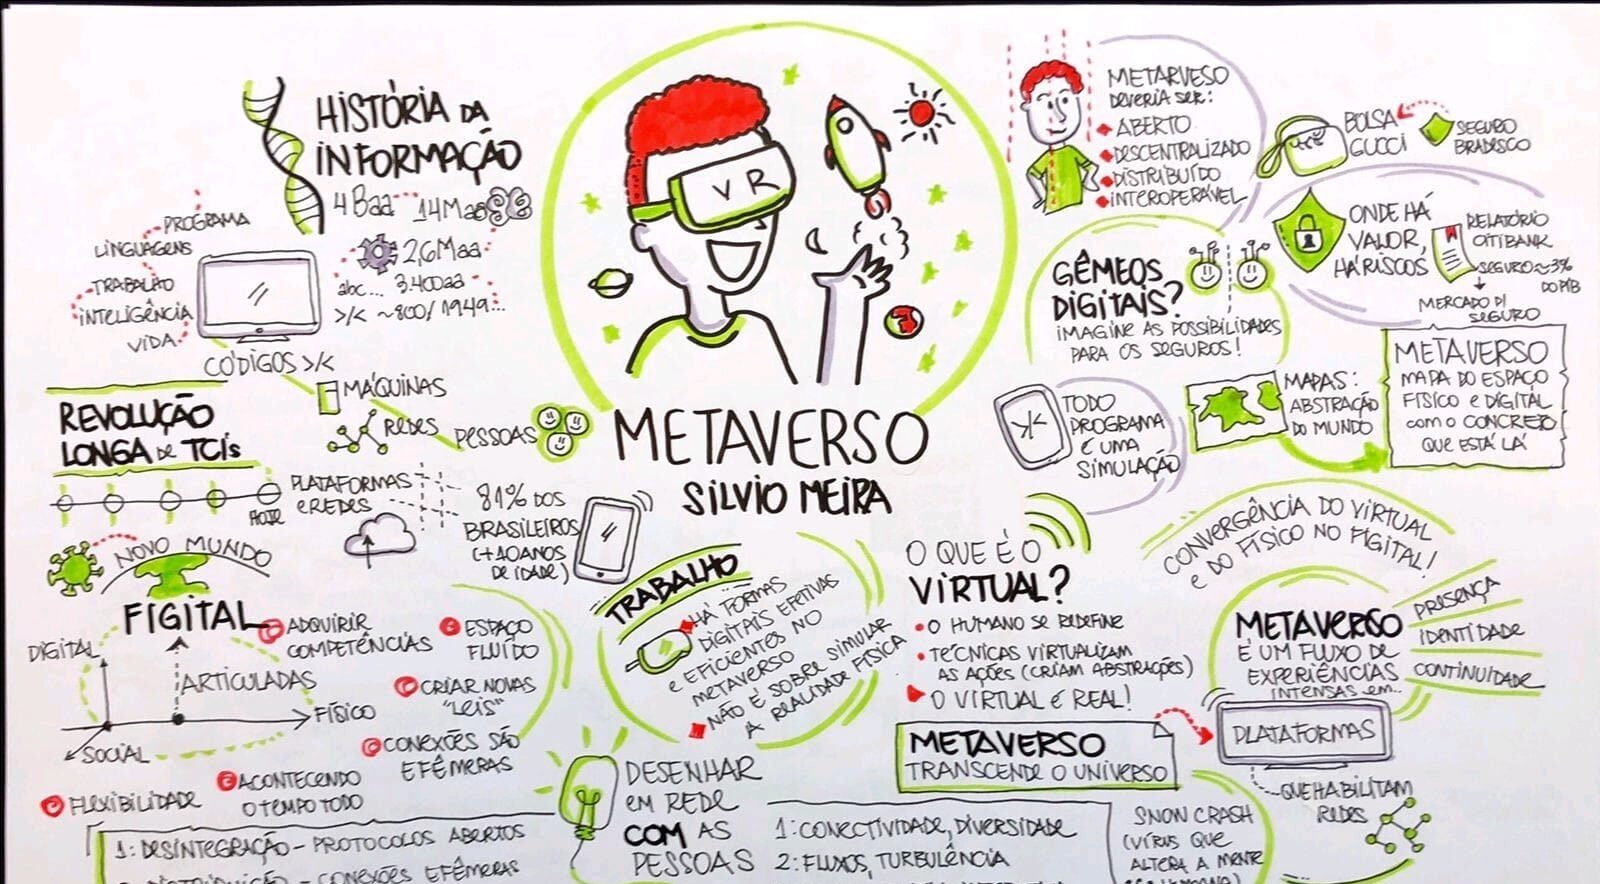 HISTÓRIA DA
INFORMAÇÃO
4 Baa 14 Maa
2,6 Maa
abc... 3.400aa
>/< ~800/1949...
PROGRAMA
LINGUAGENS
TRABALHO
INTELIGÊNCIA
VIDA
CÓDIGOS >/<
MÁQUINAS
REDES
PESSOAS
REVOLUÇÃO
LONGA DE TCIs
HOJE
PLATAFORMAS
E REDES
81% DOS
BRASILEIROS
(+10 ANOS
DE IDADE)
NOVO MUNDO
FIGITAL
DIGITAL
ARTICULADAS
FÍSICO
SOCIAL
ADQUIRIR
COMPETÊNCIAS
ESPAÇO
FLUÍDO
CRIAR NOVAS
"LEIS"
CONEXÕES SÃO
EFÊMERAS
ACONTECENDO
O TEMPO TODO
FLEXIBILIDADE
1: DESINTEGRAÇÃO - PROTOCOLOS ABERTOS
DISTRIBUIÇÃO - CONEXÕES EFÊMERAS
VR
METAVERSO
SILVIO MEIRA
TRABALHO
HÁ FORMAS
DIGITAIS EFETIVAS
E EFICIENTES NO
METAVERSO
NÃO É SOBRE SIMULAR
A REALIDADE FÍSICA
DESENHAR
EM REDE
COM AS
PESSOAS
1: CONECTIVIDADE, DIVERSIDADE
2: FLUXOS, TURBULÊNCIA
METARVESO
DEVERIA SER:
ABERTO
DESCENTRALIZADO
DISTRIBUÍDO
INTEROPERÁVEL
BOLSA
GUCCI
SEGURO
BRADESCO
ONDE HÁ
VALOR,
HÁ RISCOS
RELATÓRIO
CITIBANK
SEGURO ≈ 3%
DO PIB
MERCADO P/
SEGURO
GÊMEOS
DIGITAIS?
IMAGINE AS POSSIBILIDADES
PARA OS SEGUROS!
>/<
TODO
PROGRAMA
É UMA
SIMULAÇÃO
MAPAS:
ABSTRAÇÃO
DO MUNDO
METAVERSO
MAPA DO ESPAÇO
FÍSICO E DIGITAL
COM O CONCRETO
QUE ESTÁ LÁ
O QUE É O
VIRTUAL?
O HUMANO SE REDEFINE
TÉCNICAS VIRTUALIZAM
AS AÇÕES (CRIAM ABSTRAÇÕES)
O VIRTUAL É REAL!
METAVERSO
TRANSCENDE O UNIVERSO
CONVERGÊNCIA DO VIRTUAL
E DO FÍSICO NO FIGITAL!
METAVERSO
É UM FLUXO DE
EXPERIÊNCIAS
INTENSAS EM...
PRESENÇA
IDENTIDADE
CONTINUIDADE
PLATAFORMAS
QUE HABILITAM
REDES
SNOW CRASH
(VÍRUS QUE
ALTERA A MENTE